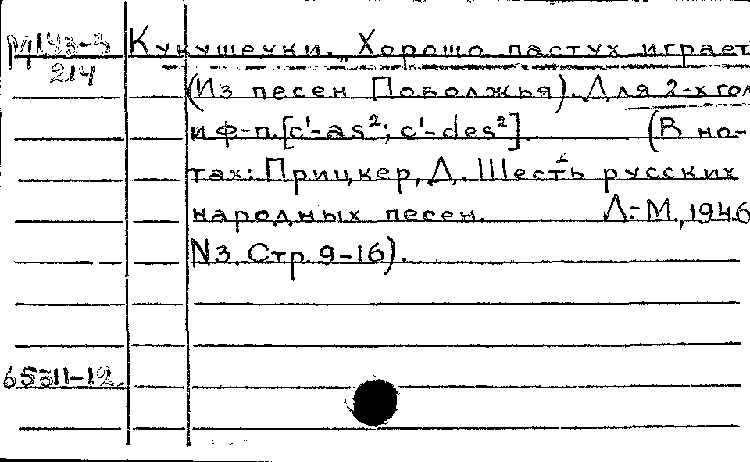 М143-3
214
Кукушечки. „Хорошо пастух играет
(Из песен Поволжья). Для 2-х гол
и ф-п. [c¹-as²; c¹-des²]. (В но-
тах: Прицкер, Д. Шесть русских
народных песен. Л.-М., 1946
N3. Стр. 9-16).
65311-12.